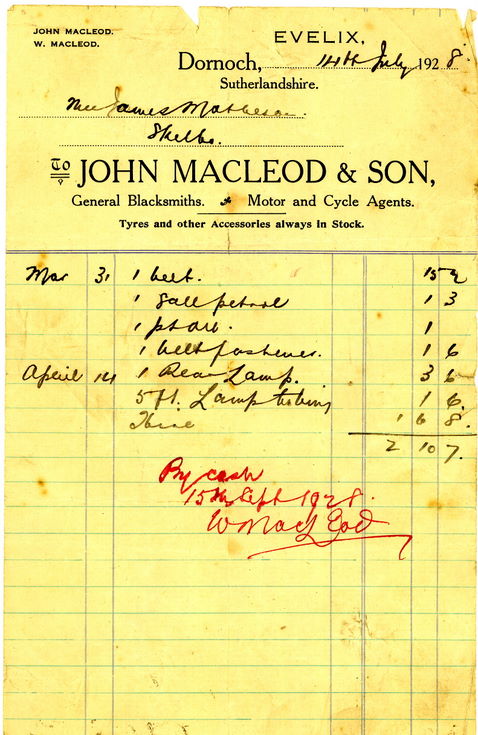 JOHN MACLEOD.
W. MACLEOD.
EVELIX,
Dornoch, 14th July 1928.
Sutherlandshire.
James Matheson.
Skelbo.
To JOHN MACLEOD & SON,
General Blacksmiths. Motor and Cycle Agents.
Tyres and other Accessories always in Stock.
Mar 31 1 belt. 15 2
1 Gall petrol 1 3
1 pt oil. 1
1 belt fastener. 1 6
April 14 1 Rear Lamp. 3 6
5 Ft. Lamp tubing 1 6.
1 6 8.
2 10 7.
By cash
15th Sept 1928.
W MacLeod